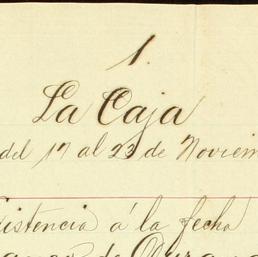 1.
La Caja
del 17 al 23 de Noviem
istencia á la fecha
de Duran